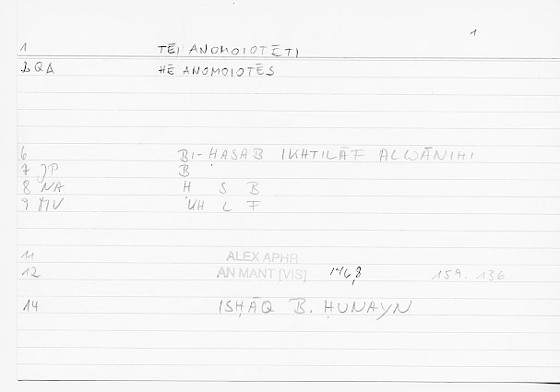 1
1 TĒI ANOMOIOTĒTI
BQA HĒ ANOMOIOTĒS
6 BI-ḤASAB IKHTILĀF ALWĀNIHI
7 JP B
8 NA Ḥ S B
9 MV KH L F
11 ALEX APHR
12 AN MANT [VIS] 146,8 159. 136
14 ISḤĀQ B. ḤUNAYN